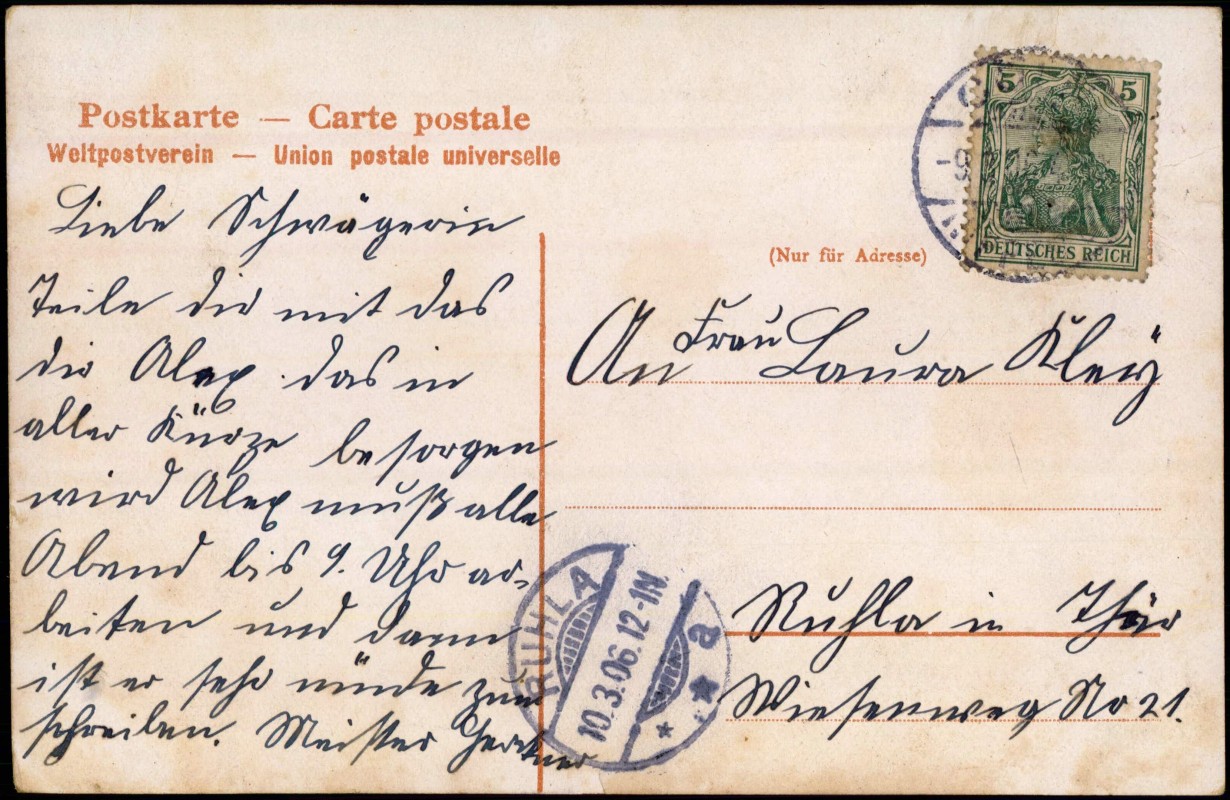 Postkarte — Carte postale
Weltpostverein — Union postale universelle
5 5
DEUTSCHES REICH
(Nur für Adresse)
Liebe Schwägerin
Teile dir mit das
dir Alex das in
aller Kürze besorgen
wird Alex muß alle
Abend bis 9. Uhr ar-
beiten und dann
ist er sehr müde zum
schreiben. Meister
An Frau Laura Kley
Ruhla in Thür
Wiesenweg No 21.
RUHLA
10.3.06.12-1N.
* * a